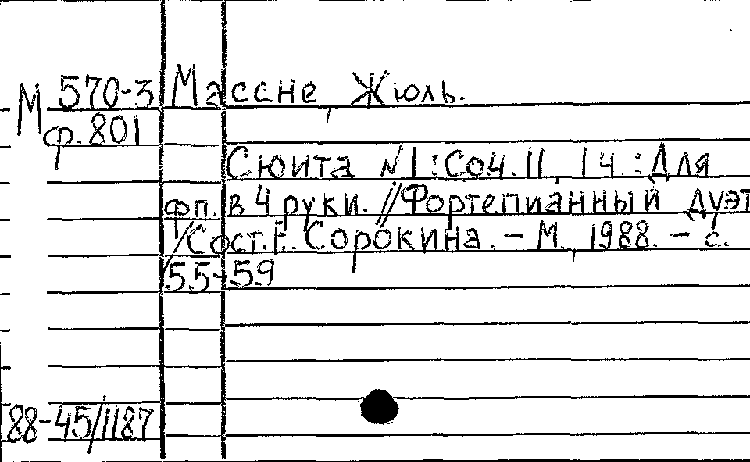 М 570-3 Массне, Жюль.
ф.801
Сюита №1: Соч.11, 1 ч.: Для
фп. в 4 руки. // Фортепианный дуэт
/ Сост. Е. Сорокина. – М., 1988. – с.
55-59
88-45/1187